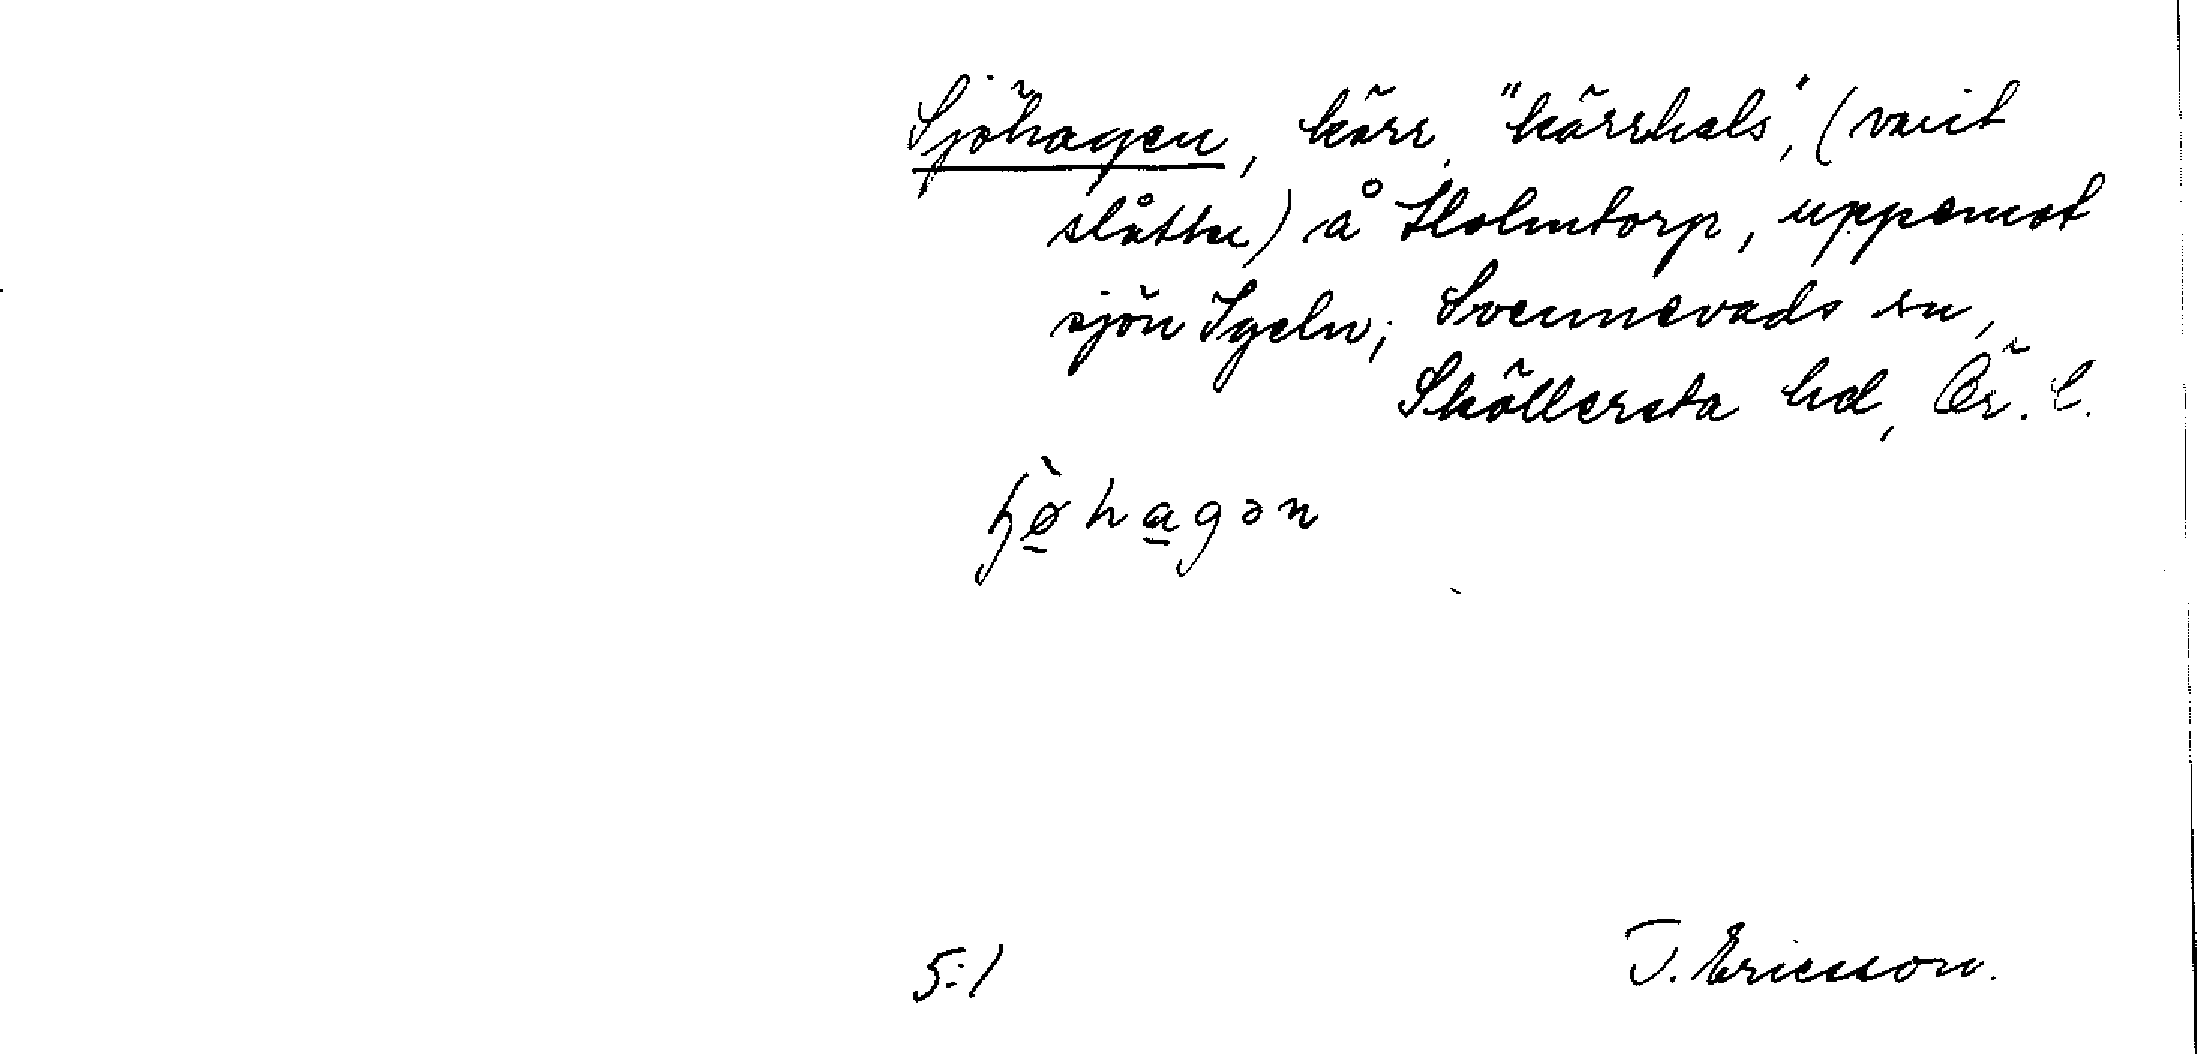 Sjöhagen, kärr, "kärrhals", (varit
slåtter) å Holmtorp, uppemot
sjön Igeln; Svennevads sn,
Sköllersta hd, Ör. l.
ɧø̀hagən
5:1 J. Ericsson.